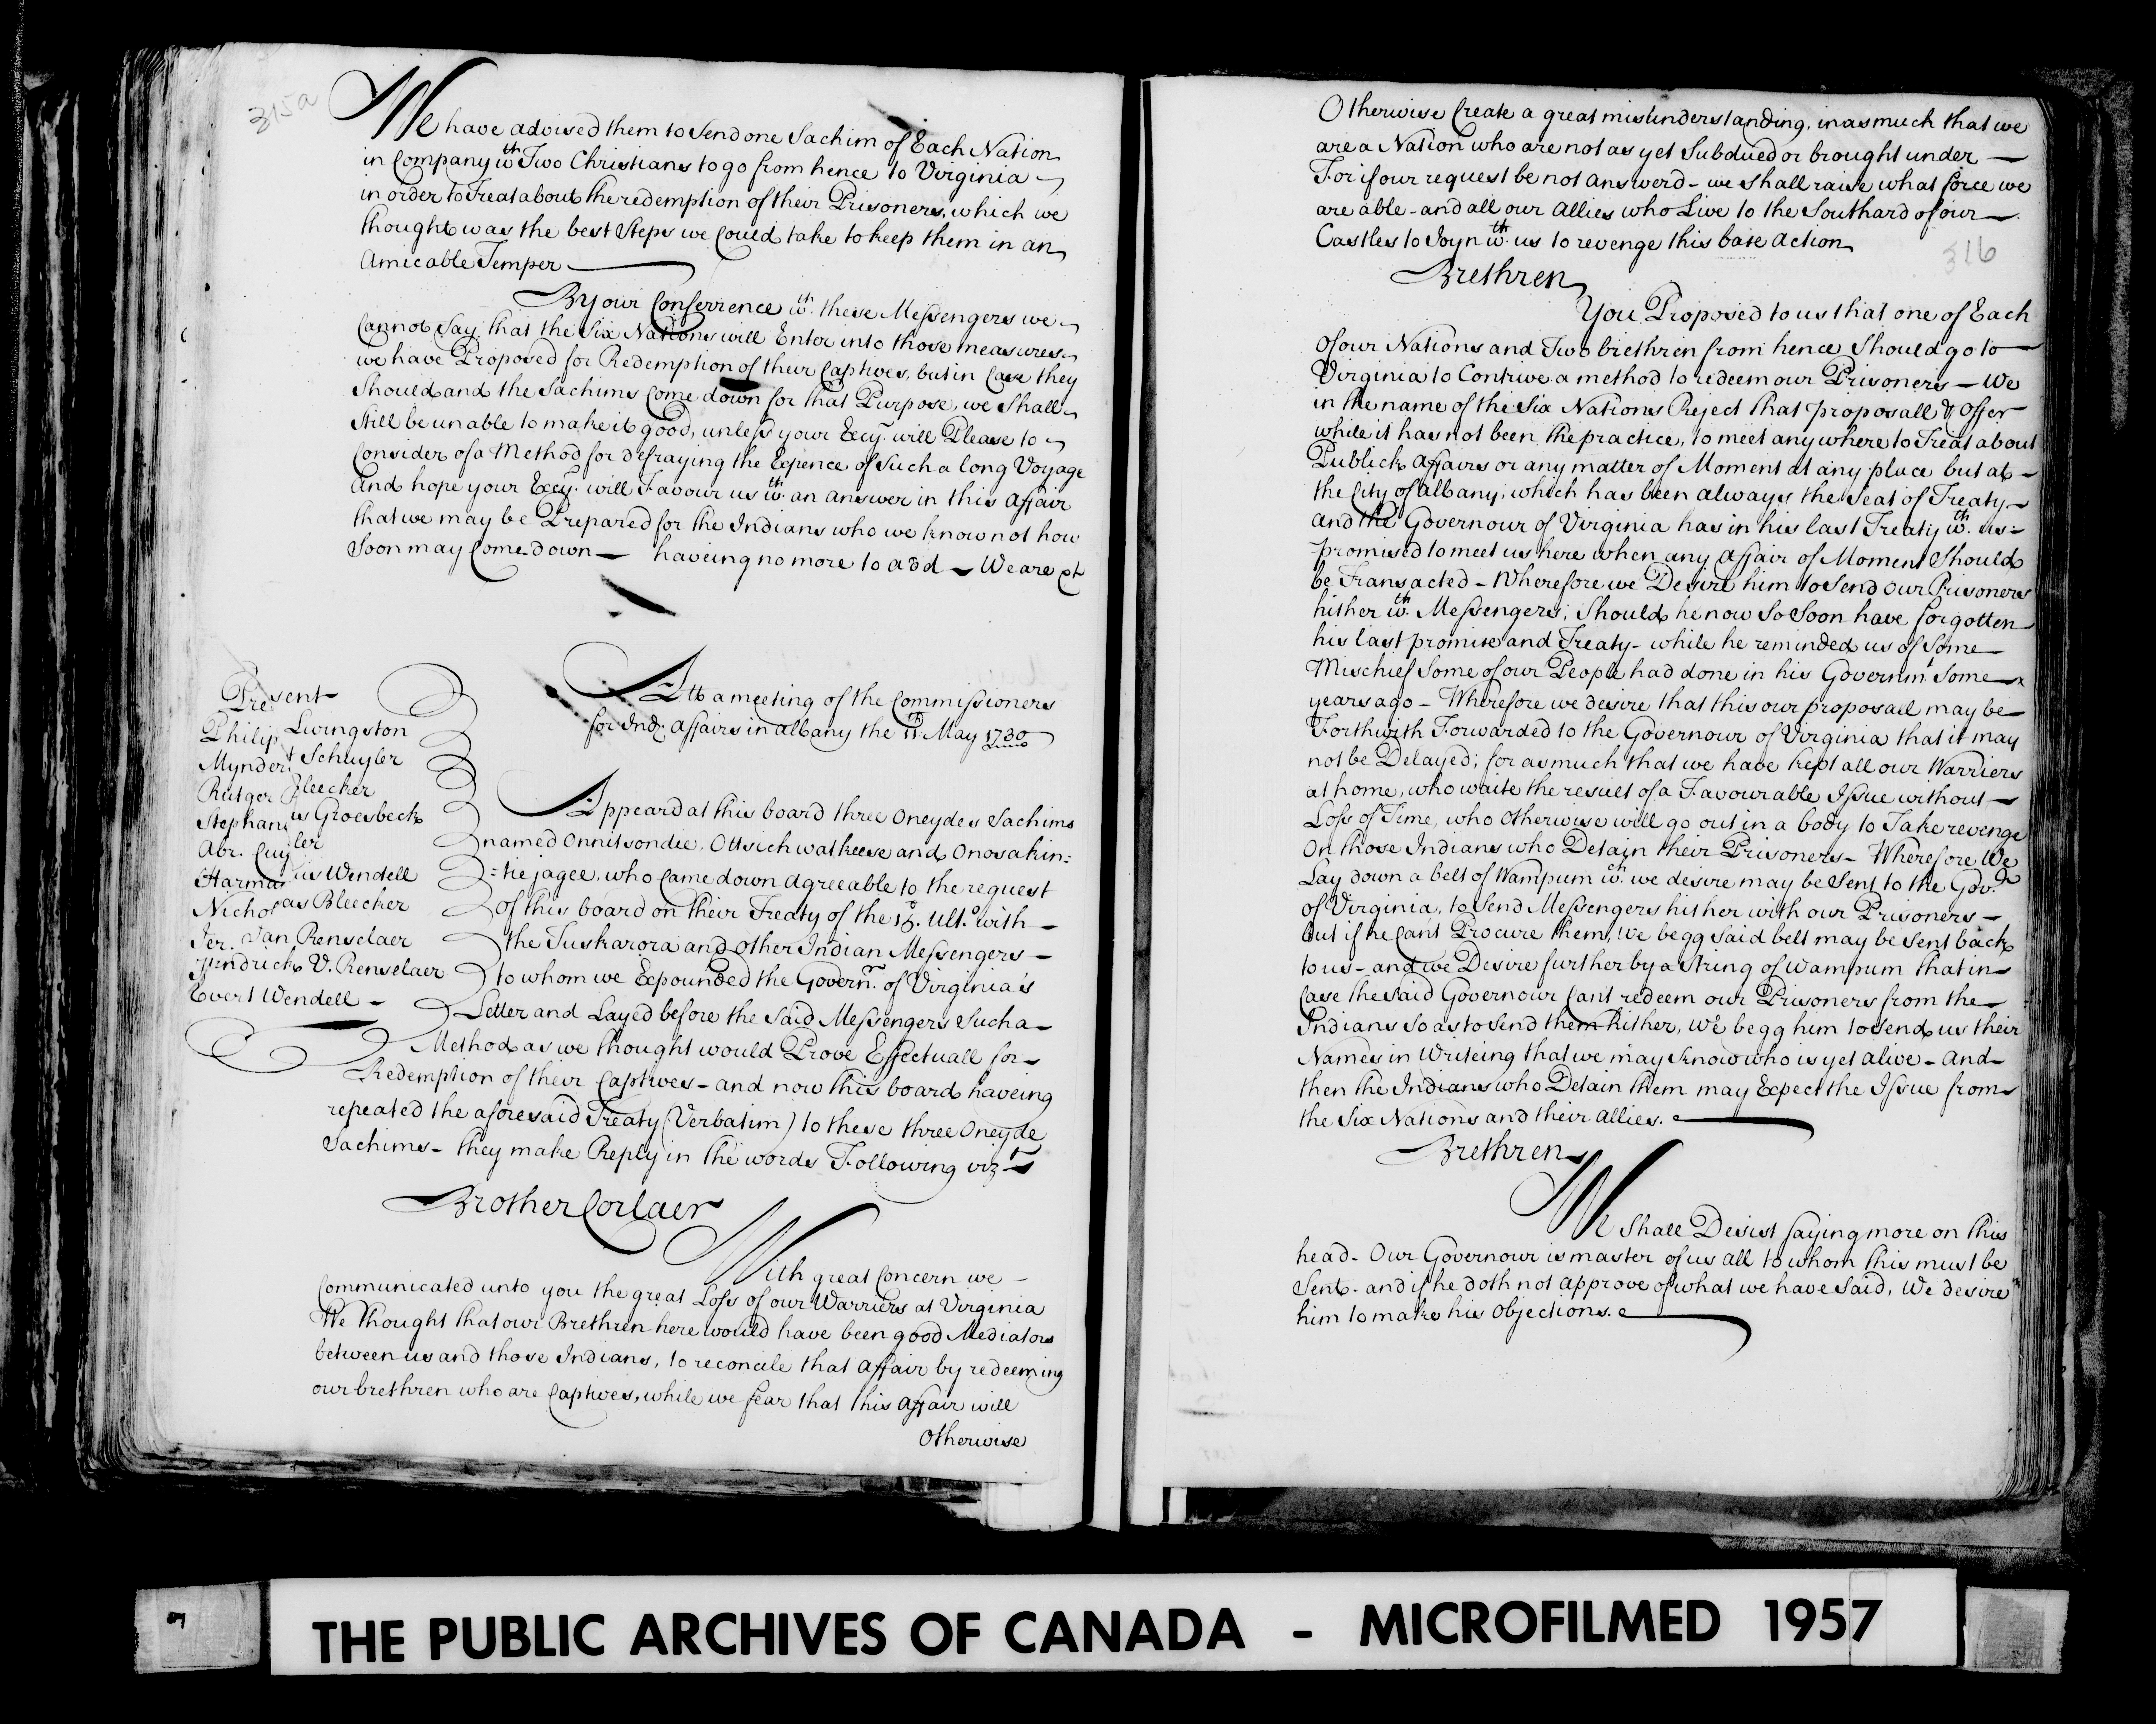 315a
We have advised them to Send one Sachim of Each Nation
in Company wth Two Christians to go from hence to Virginia
in order to Treat about the redemption of their Prisoners, which we
thought was the best Steps we Could take to keep them in an
Amicable Temper
By our Conferrence wth these Messengers we
Cannot Say that the Six Nations will Enter into those measures
we have Proposed for Redemption of their Captives, but in Case they
Should and the Sachims Come down for that Purpose, we Shall
Still be unable to make it good, unless your Excy. will Please to
Consider of a Method for defraying the Expence of Such a long Voyage
And hope your Excy. will Favour us wth an answer in this affair
that we may be Prepared for the Indians who we know not how
Soon may Come down — haveing no more to add — We are &c
Att a meeting of the Commissioners
for Ind: affairs in albany the 11th May 1730
Present
Philip Livingston
Myndert Schuyler
Rutger Bleecker
Stephanus Groesbeck
Abr. Cuyler
Harmanus Wendell
Nicholas Bleecker
Jer. Van Renselaer
Hendrick V. Renselaer
Evert Wendell —
Appeard at this board three Oneydes Sachims
named Onnitsondie, Ottsichwatkeese and Onosakin=
=tiejagee, who Came down agreeable to the request
of this board on their Treaty of the Ulto. with —
the Tuskarora and Other Indian Messengers —
to whom we Expounded the Governr. of Virginia's
Letter and Layed before the Said Messengers Such a —
Method as we thought would Prove Effectuall for —
Redemption of their Captives — and now this board haveing
repeated the aforesaid Treaty (Verbatim) to these three Oneyde
Sachims — they make Reply in the words Following vizt
Brother Corlaer
With great Concern we —
Communicated unto you the great Loss of our Warriers at Virginia
We thought that our Brethren here would have been good Mediators
between us and those Indians, to reconcile that affair by redeeming
our brethren who are Captives, while we fear that this affair will
Otherwise
Otherwise Create a great misunderstanding, in as much that we
are a Nation who are not as yet Subdued or brought under —
For if our request be not answerd — we Shall raise what force we
are able — and all our Allies who Live to the Southard of our —
Castles to Joyn wth. us to revenge this base action
316
Brethren
You Proposed to us that one of Each
of our Nations and Two brethren from hence Should go to —
Virginia to Contrive a method to redeem our Prisoners — We
in the name of the Six Nations Reject that proposall & Offer
while it has not been the practice, to meet any where to Treat about
Publick affairs or any matter of Moment at any place but at —
the City of albany, which has been always the Seat of Treaty —
and the Governour of Virginia has in his last Treaty wth. us =
promised to meet us here when any affair of Moment Should
be Transacted — Wherefore we Desire him to Send our Prisoners
hither wth. Messengers; Should he now So Soon have forgotten
his last promise and Treaty — while he reminded us of Some —
Mischief Some of our People had done in his Governmt Some —
years ago — Wherefore we desire that this our proposall may be —
Forthwith Forwarded to the Governour of Virginia that it may
not be Delayed; for as much that we have kept all our Warriers
at home, who waite the result of a Favourable Issue without —
Loss of Time, who Otherwise will go out in a body to Take revenge
On those Indians who Detain their Prisoners — Wherefore We
Lay down a belt of Wampum wch. we desire may be Sent to the Govr.
of Virginia, to Send Messengers hither with our Prisoners —
but if he Can't Procure them, we begg said belt may be Sent back
to us — and we Desire further by a String of wampum that in —
Case the Said Governour Can't redeem our Prisoners from the —
Indians So as to Send them hither, we begg him to Send us their
Names in Writeing that we may know who is yet alive — and —
then the Indians who Detain them may Expect the Issue from
the Six Nations and their allies.
Brethren
We Shall Desist Saying more on this
head — Our Governour is master of us all to whom this must be
Sent — and if he doth not approve of what we have Said, We desire
him to make his Objections.
THE PUBLIC ARCHIVES OF CANADA - MICROFILMED 1957